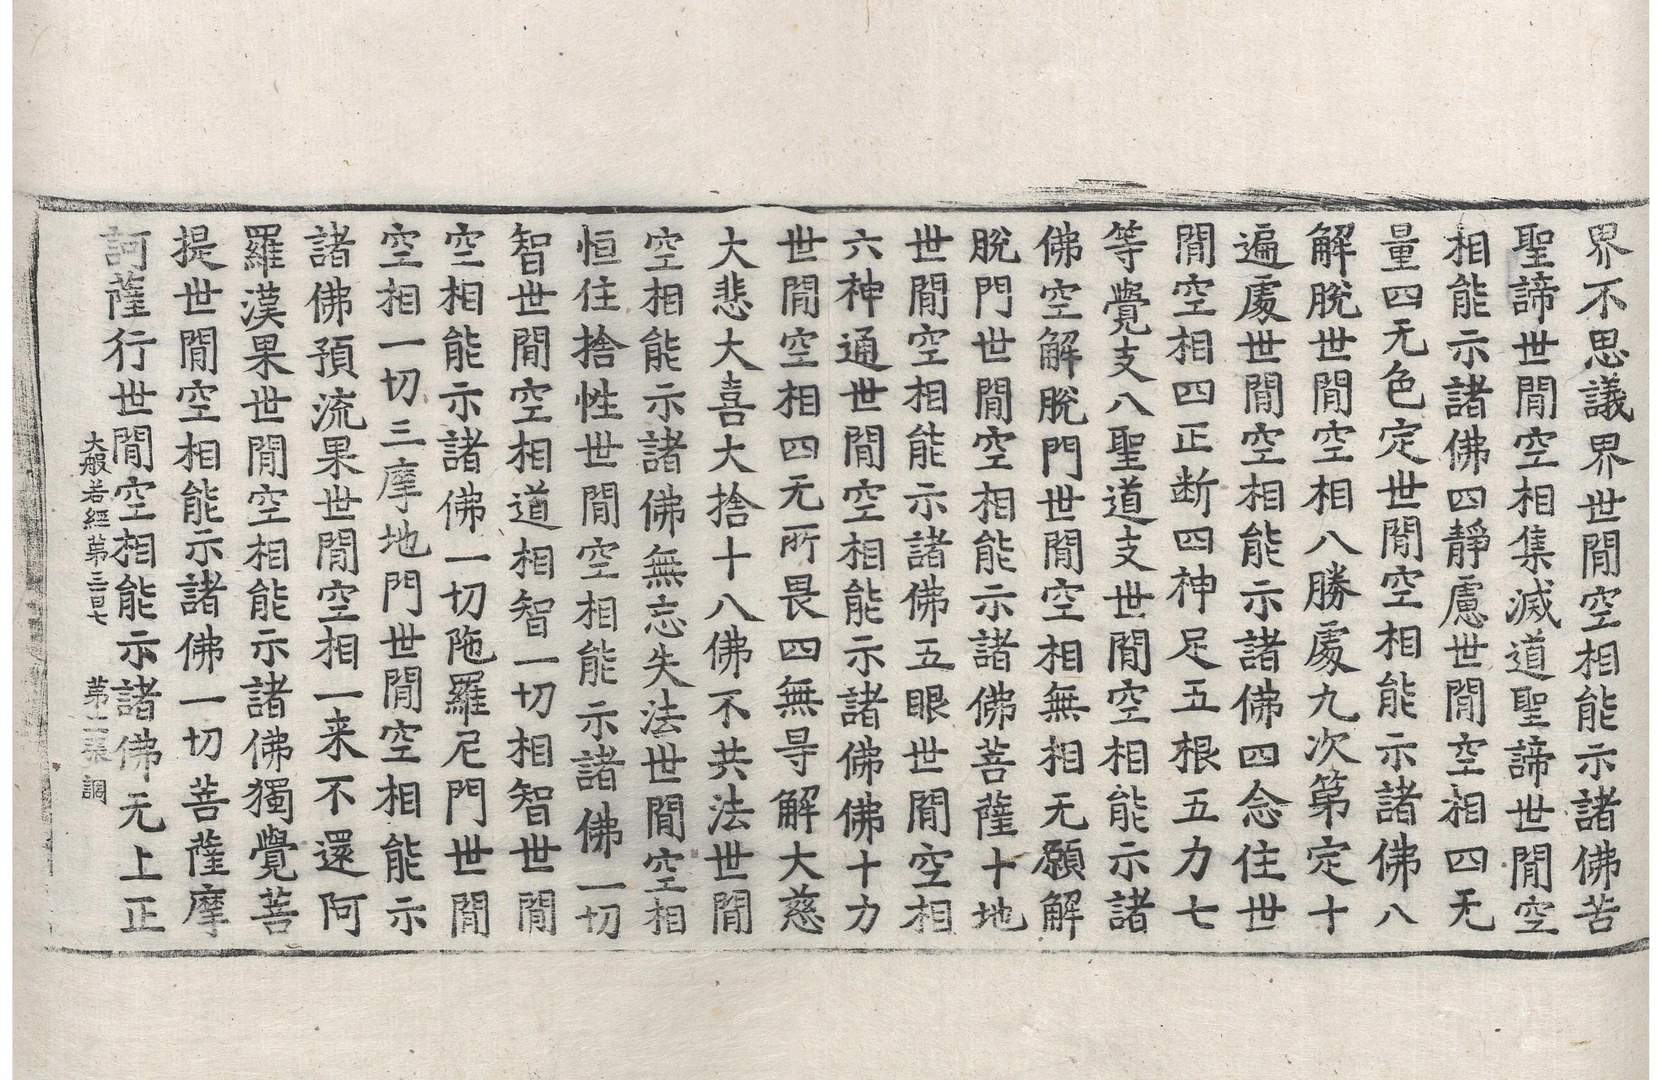 界不思議界世間空相能示諸佛苦
聖諦世間空相集滅道聖諦世間空
相能示諸佛四靜慮世間空相四无
量四无色定世間空相能示諸佛八
解脫世間空相八勝處九次第定十
遍處世間空相能示諸佛四念住世
間空相四正断四神足五根五力七
等覺支八聖道支世間空相能示諸
佛空解脫門世間空相無相无願解
脫門世間空相能示諸佛菩薩十地
世間空相能示諸佛五眼世間空相
六神通世間空相能示諸佛佛十力
世間空相四无所畏四無㝵解大慈
大悲大喜大捨十八佛不共法世間
空相能示諸佛無忘失法世間空相
恒住捨性世間空相能示諸佛一切
智世間空相道相智一切相智世間
空相能示諸佛一切陁羅尼門世間
空相一切三摩地門世間空相能示
諸佛預流果世間空相一来不還阿
羅漢果世間空相能示諸佛獨覺菩
提世間空相能示諸佛一切菩薩摩
訶薩行世間空相能示諸佛无上正
大般若經第三百七 第二張 調